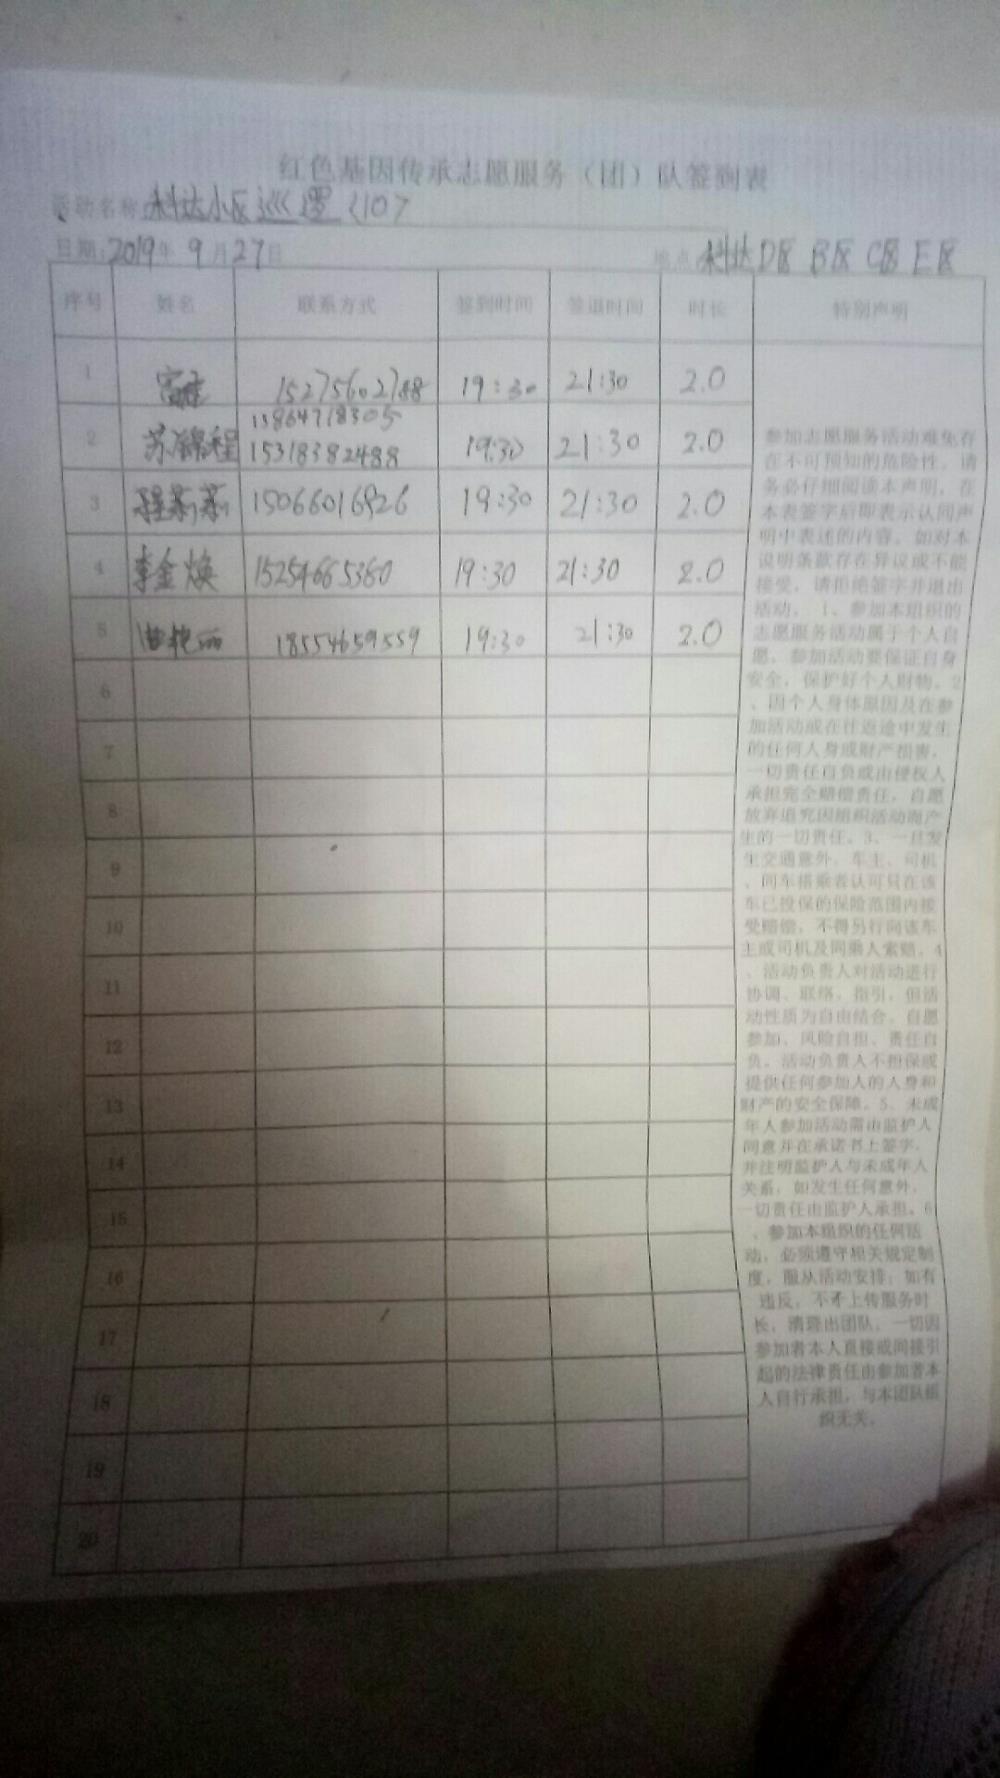 红色基因传承志愿服务（团）队签到表
活动名称 科达小区巡逻〈10〉
日期:2019年 9月27日 地点 科达D区 B区 C区 E区
序号 姓名 联系方式 签到时间 签退时间 时长 特别声明
1 15275602788 19:30 21:30 2.0
13864718305
2 苏锦程 15318382488 19:30 21:30 2.0
3 程新新 15066016926 19:30 21:30 2.0
4 李金焕 15254665360 19:30 21:30 2.0
5 曹艳丽 18554659559 19:30 21:30 2.0
6
7
8
9
10
11
12
13
14
15
16
17
18
19
20
参加志愿服务活动难免存
在不可预知的危险性，请
务必仔细阅读本声明，在
本表签字后即表示认同声
明中表述的内容。如对本
说明条款存在异议或不能
接受，请拒绝签字并退出
活动。 1、参加本组织的
志愿服务活动属于个人自
愿，参加活动要保证自身
安全，保护好个人财物。2
、因个人身体原因及在参
加活动或在往返途中发生
的任何人身或财产损害，
一切责任自负或由侵权人
承担完全赔偿责任，自愿
放弃追究因组织活动而产
生的一切责任。3、一旦发
生交通意外，车主、司机
、同车搭乘者认可只在该
车已投保的保险范围内接
受赔偿，不得另行向该车
主或司机及同乘人索赔。4
、活动负责人对活动进行
协调、联络、指引，但活
动性质为自由结合，自愿
参加，风险自担，责任自
负。活动负责人不担保或
提供任何参加人的人身和
财产的安全保障。5、未成
年人参加活动需由监护人
同意并在承诺书上签字，
并注明监护人与未成年人
关系，如发生任何意外，
一切责任由监护人承担。6
、参加本组织的任何活
动，必须遵守相关规定制
度，服从活动安排；如有
违反，不予上传服务时
长，清理出团队，一切因
参加者本人直接或间接引
起的法律责任由参加者本
人自行承担，与本团队组
织无关。